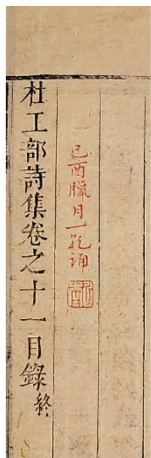 己酉臘月一花誦
杜工部詩集卷之十一目錄終